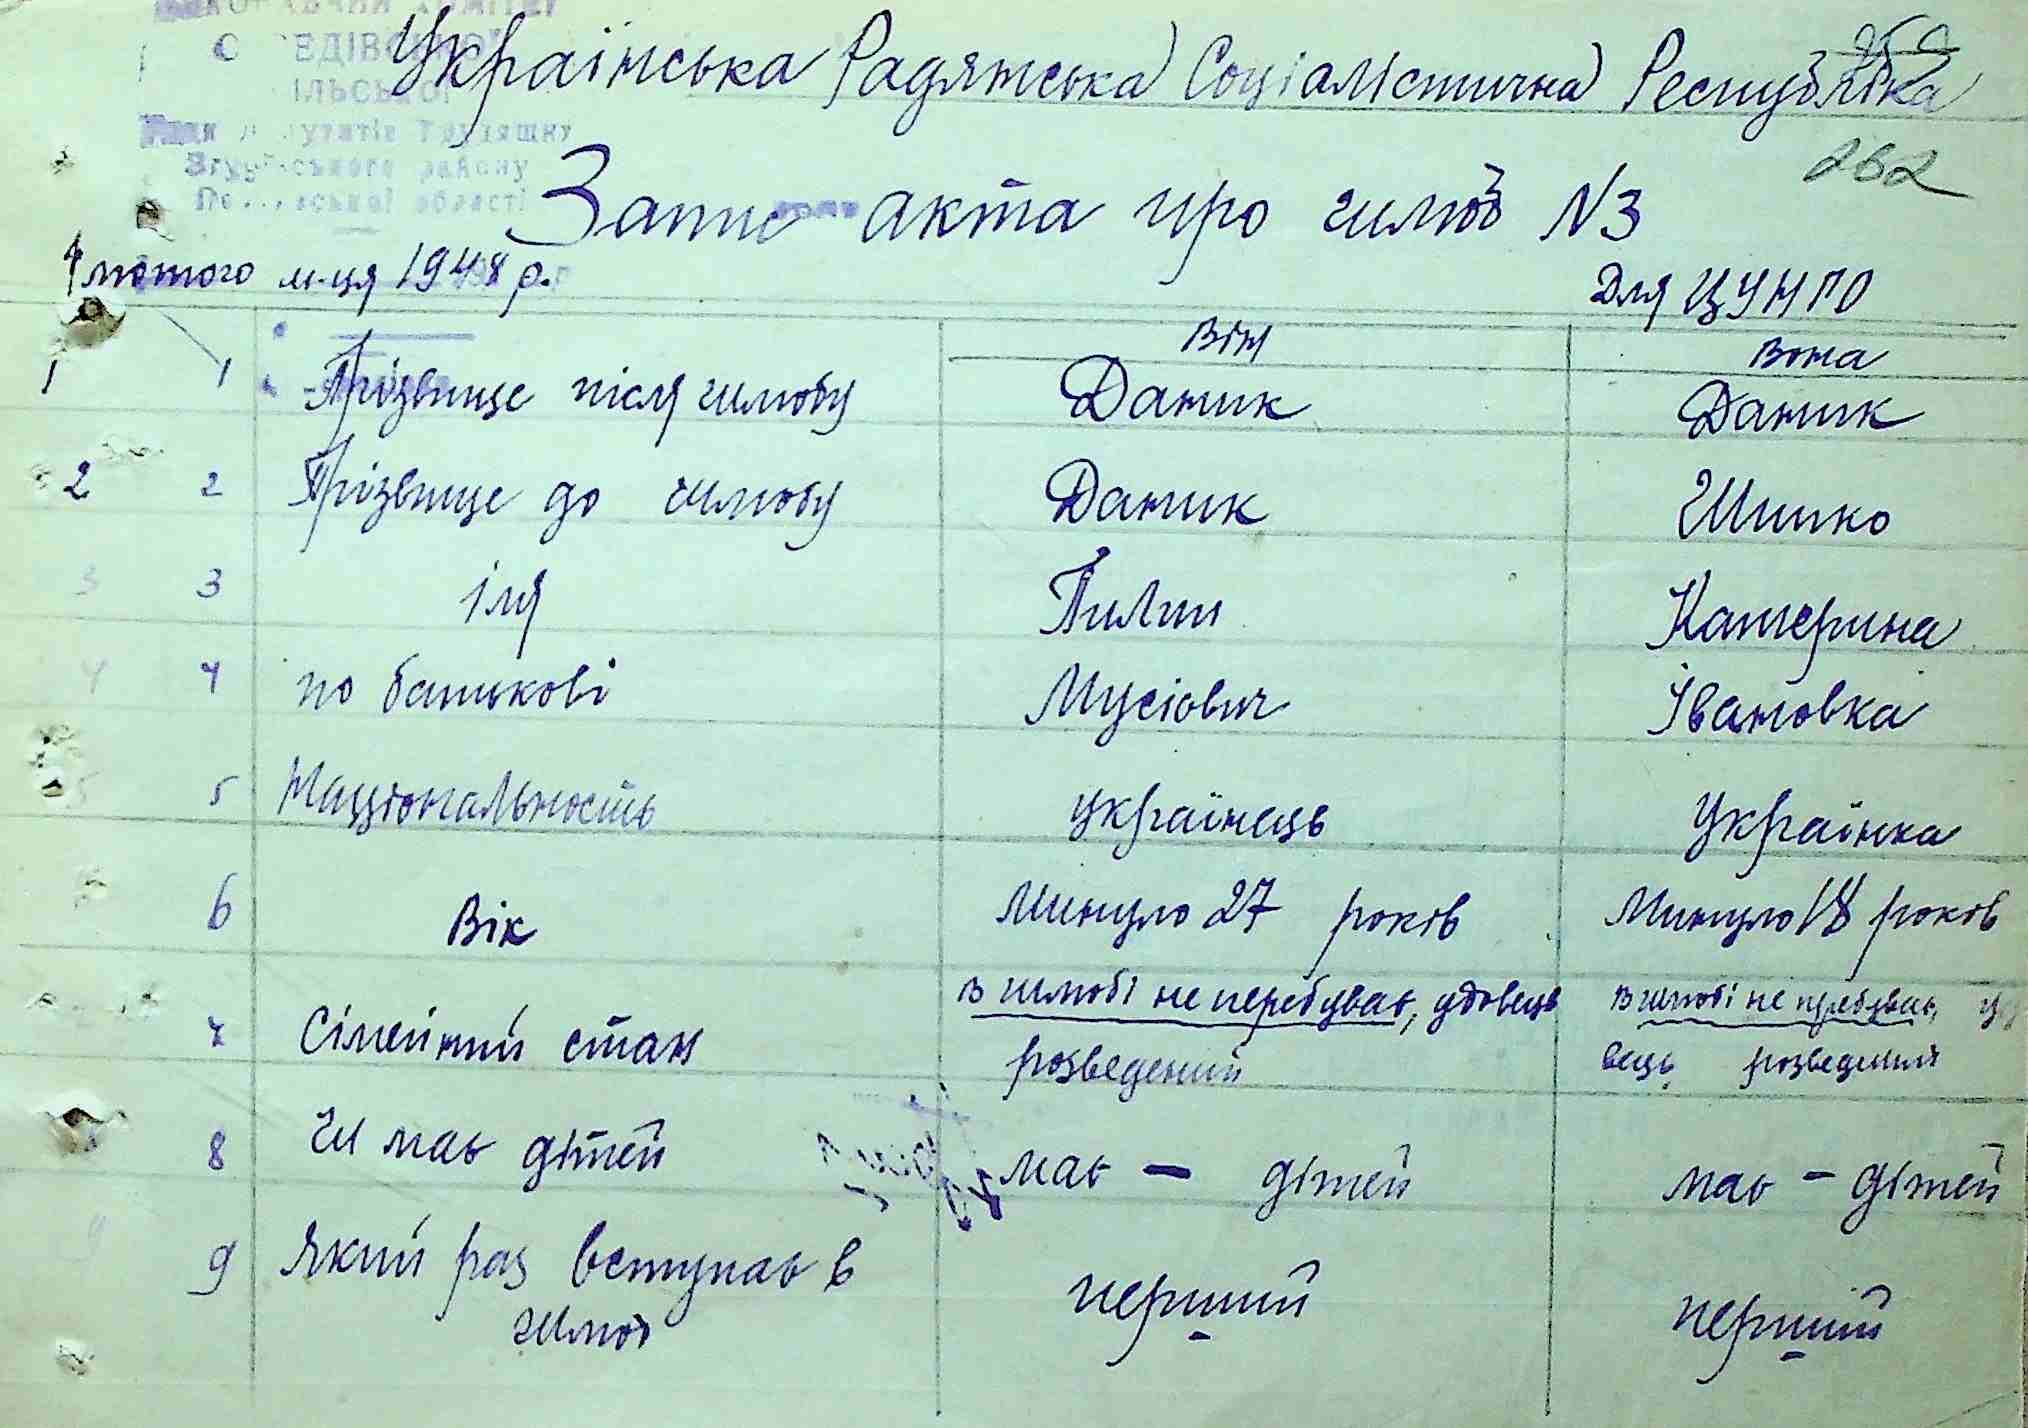 Українська Радянська Соціалістична Республіка
262
Запис акта про шлюб N3
4 лютого м-ця 1948 р.
Для ЦУНГО
Він Вона
1 1 Прізвище після шлюбу Даник Даник
2 2 Прізвище до шлюбу Даник Шишко
3 3 імя Пилип Катерина
4 4 по батькові Мусіович Івановка
5 5 Національность українець Українка
6 Вік Минуло 27 років Минуло 18 років
7 Сімейний стан в шлюбі не перебуває, удовець розведений в шлюбі не перебуває, удовець розведений
8 Чи має дітей має - дітей має - дітей
9 9 Який раз вступає в шлюб перший перший